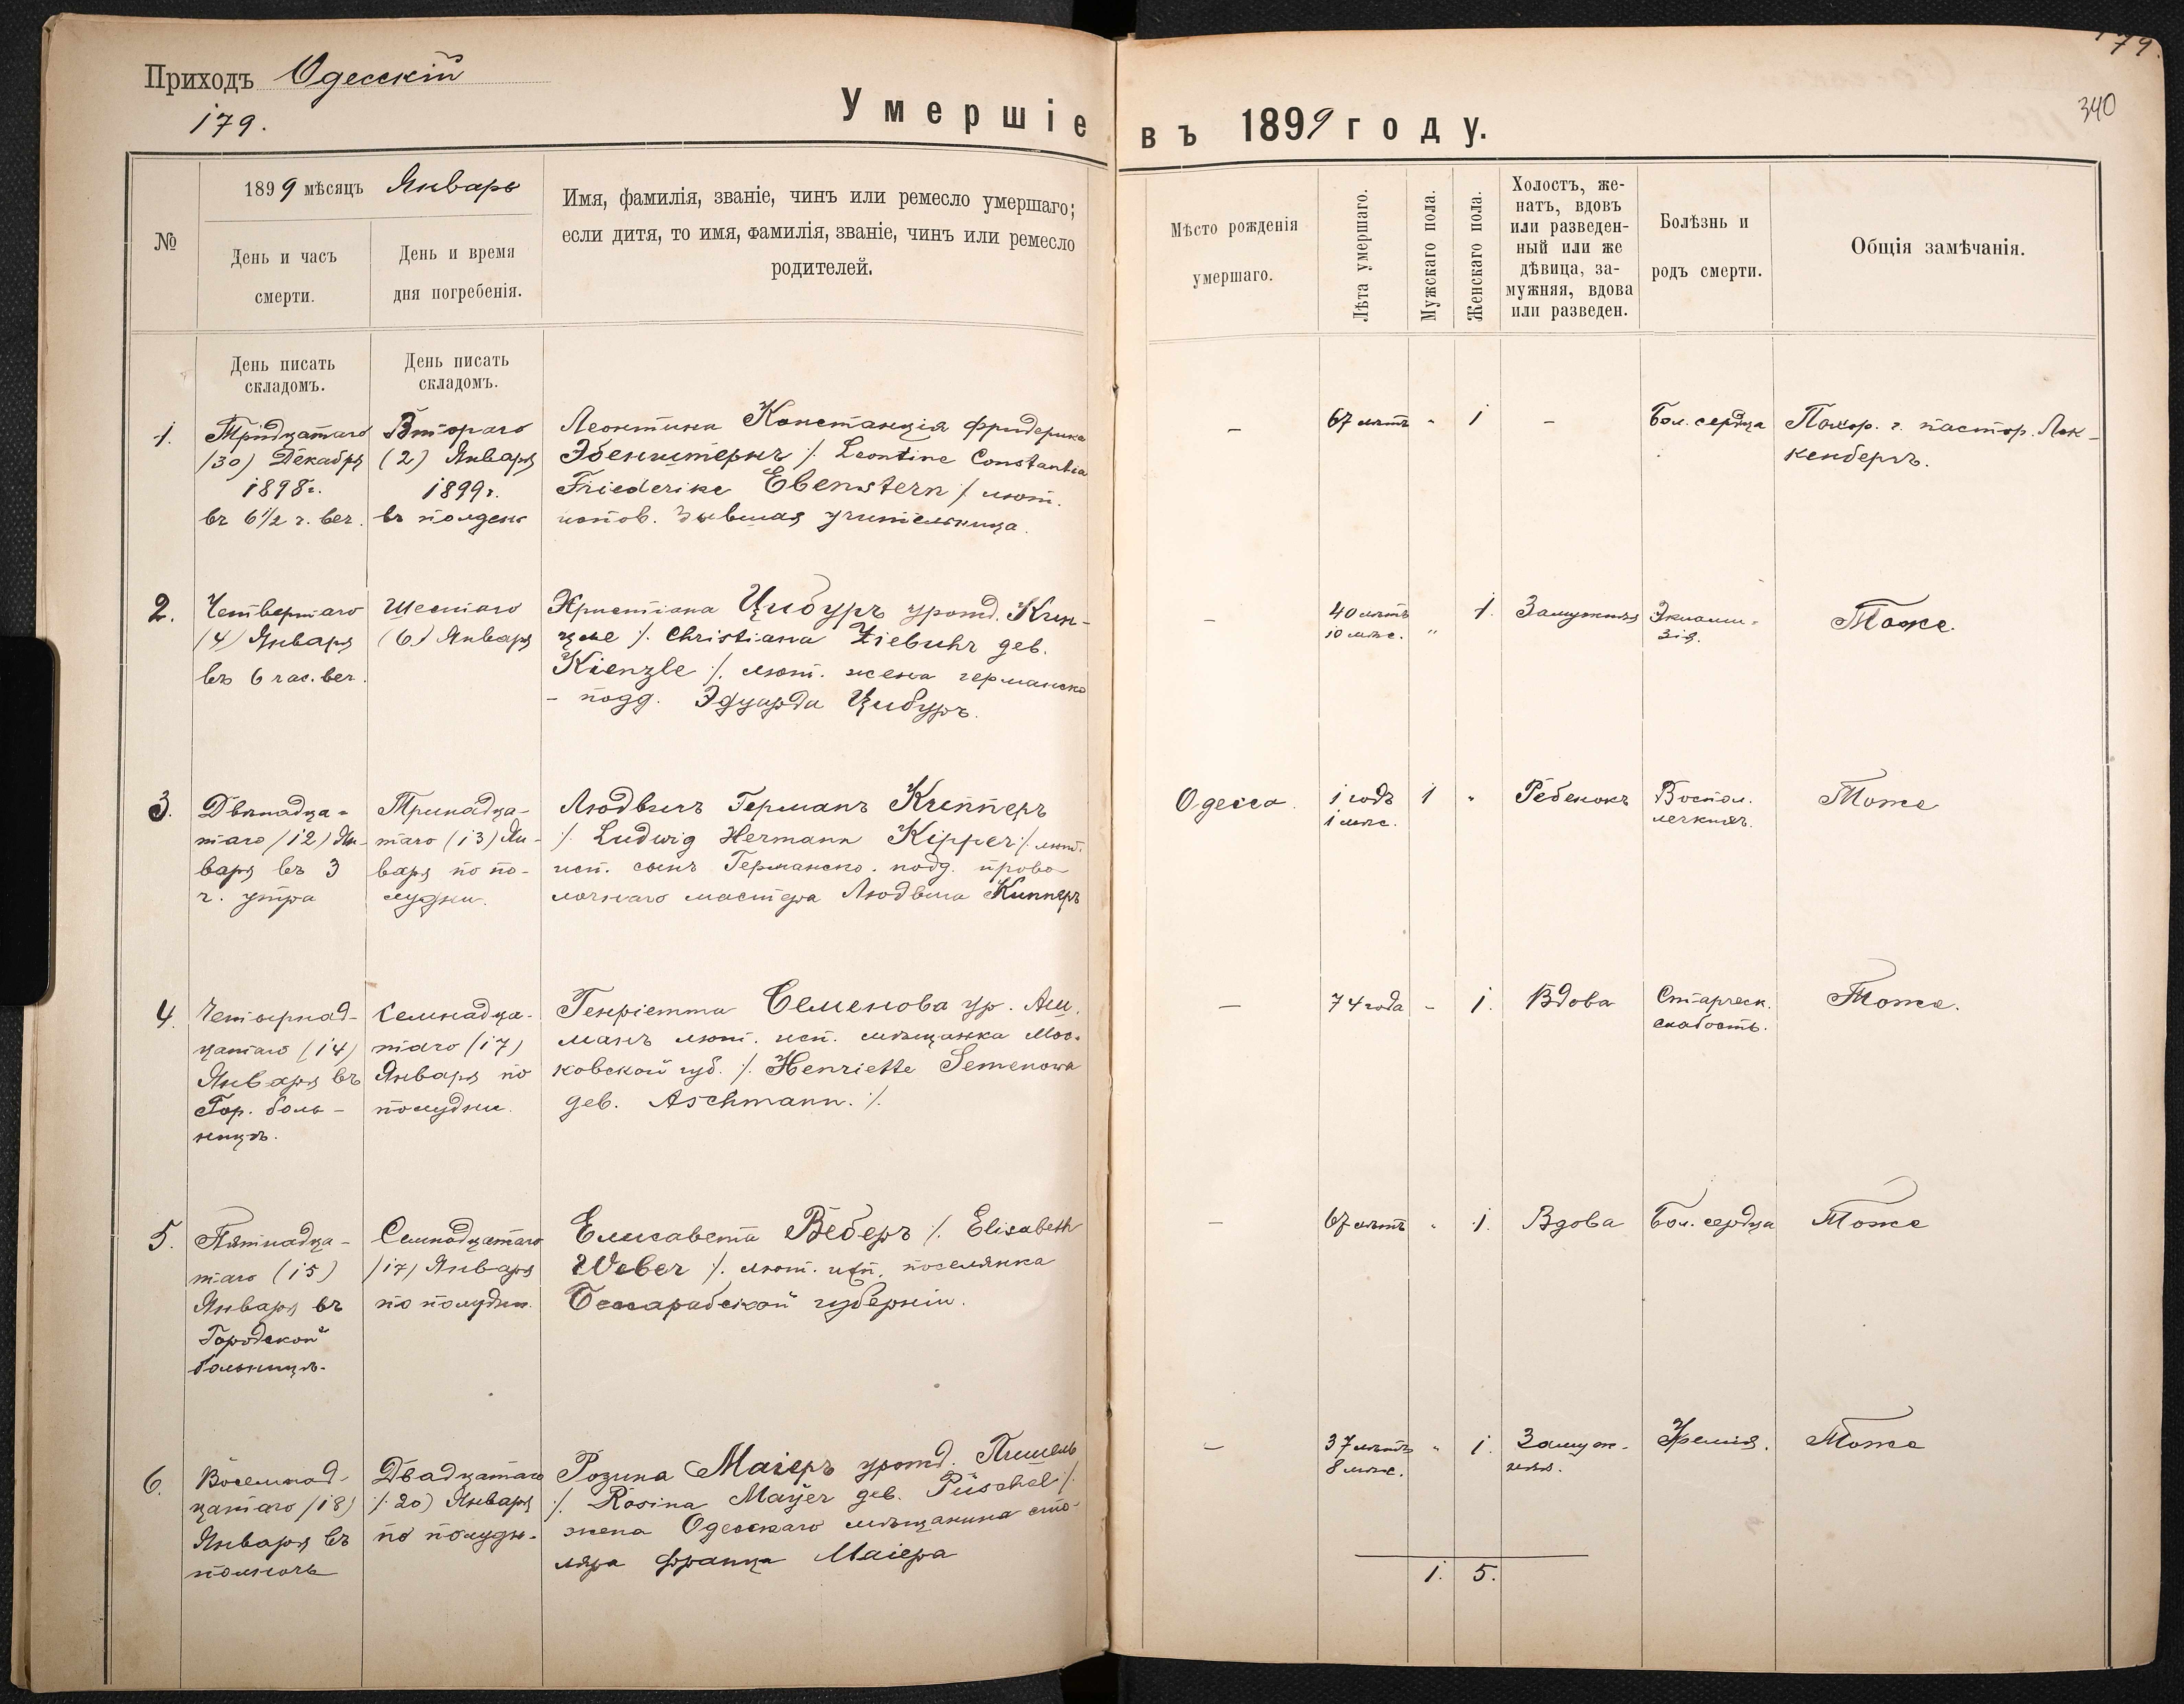 Приходъ Одесскій
179.
Умершіе
въ 1899 году.
179.
340
№
1899 мѣсяцъ Январь
День и часъ
смерти.
День и время
дня погребенія.
Имя, фамилія, званіе, чинъ или ремесло умершаго;
если дитя, то имя, фамилія, званіе, чинъ или ремесло
родителей.
Мѣсто рожденія
умершаго.
Лѣта умершаго.
Мужскаго пола.
Женскаго пола.
Холостъ, же-
натъ, вдовъ
или разведен-
ный или же
дѣвица, за-
мужняя, вдова
или разведен.
Болѣзнь и
родъ смерти.
Общія замѣчанія.
День писать
складомъ.
День писать
складомъ.
1.
Тридцатаго
/30) Декабря
1898 г.
въ 6 1/2 ч. веч.
Втораго
(2) Января
1899 г.
въ полдень
Леонтина Констанція Фридерика
Эбенштернъ /. Leontine Constantia
Friederike Ebenstern / лют.
испов. бывшая учительница.
–
67 лѣтъ
"
1
–
Бол. сердца
Похор. г. пастор. Лок-
кенбергъ.
2.
Четвертаго
/4) Января
въ 6 час. веч.
Шестаго
(6) Января
Христіана Цибуръ урожд. Кин-
цле /. Christiana Ziebuhr geb.
Kienzle /. лют. жена германско
- подд. Эдуарда Цибуръ.
–
40 лѣтъ
10 мѣс.
"
1.
Замужняя
Эклами-
зія.
Тоже.
3.
Двѣнадца-
таго /12) Ян-
варя въ 3
ч. утра
Тринадца-
таго (13) Ян-
варя по по-
лудни.
Людвигъ Германъ Кипперъ
/. Ludwig Hermann Kipper /. лют.
исп. сынъ Германско. подд. прово-
лочнаго мастера Людвига Кипперъ
Одесса.
1 годъ
1 мѣс.
1
"
Ребенокъ
Воспал.
легкихъ.
Тоже
4.
Четырнад-
цатаго (14)
Января въ
Гор. боль-
ницѣ.
Семнадца-
таго (17)
Января по
полудни.
Генріетта Семенова ур. Аш.
манъ лют. исп. мѣщанка Мос-
ковской губ. /. Henriette Semenowa
geb. Aschmann. /.
–
74 года
–
1.
Вдова
Старческ.
слабость.
Тоже.
5.
Пятнадца-
таго (15)
Января въ
Городской
больницѣ.
Семнадцатаго
/17) Января
по полудни.
Елисавета Веберъ /. Elisabeth
Weber /. лют. исп. поселянка
Бессарабской губерніи.
–
67 лѣтъ
"
1.
Вдова
Бол. сердца
Тоже
6.
Восемнад-
цатаго /18)
Января въ
полночь
Двадцатаго
/. 20) Января
по полудн.
Розина Маіеръ урожд. Пишель
/. Rosina Mayer geb. Püschel /.
жена Одесскаго мѣщанина сто-
ляра Франца Маіера
–
37 лѣтъ
8 мѣс.
"
1.
Замуж-
няя.
Уремія.
Тоже
1. 5.